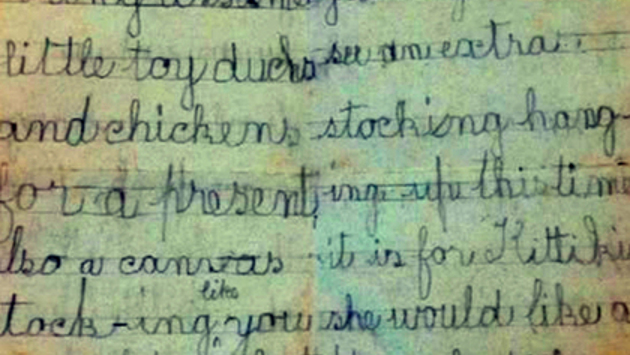 little toy ducks
and chickens
for a present,
lso a canvas
like
tock-ing you
see an extra
stocking hang-
ing up this time
it is for
she would like a